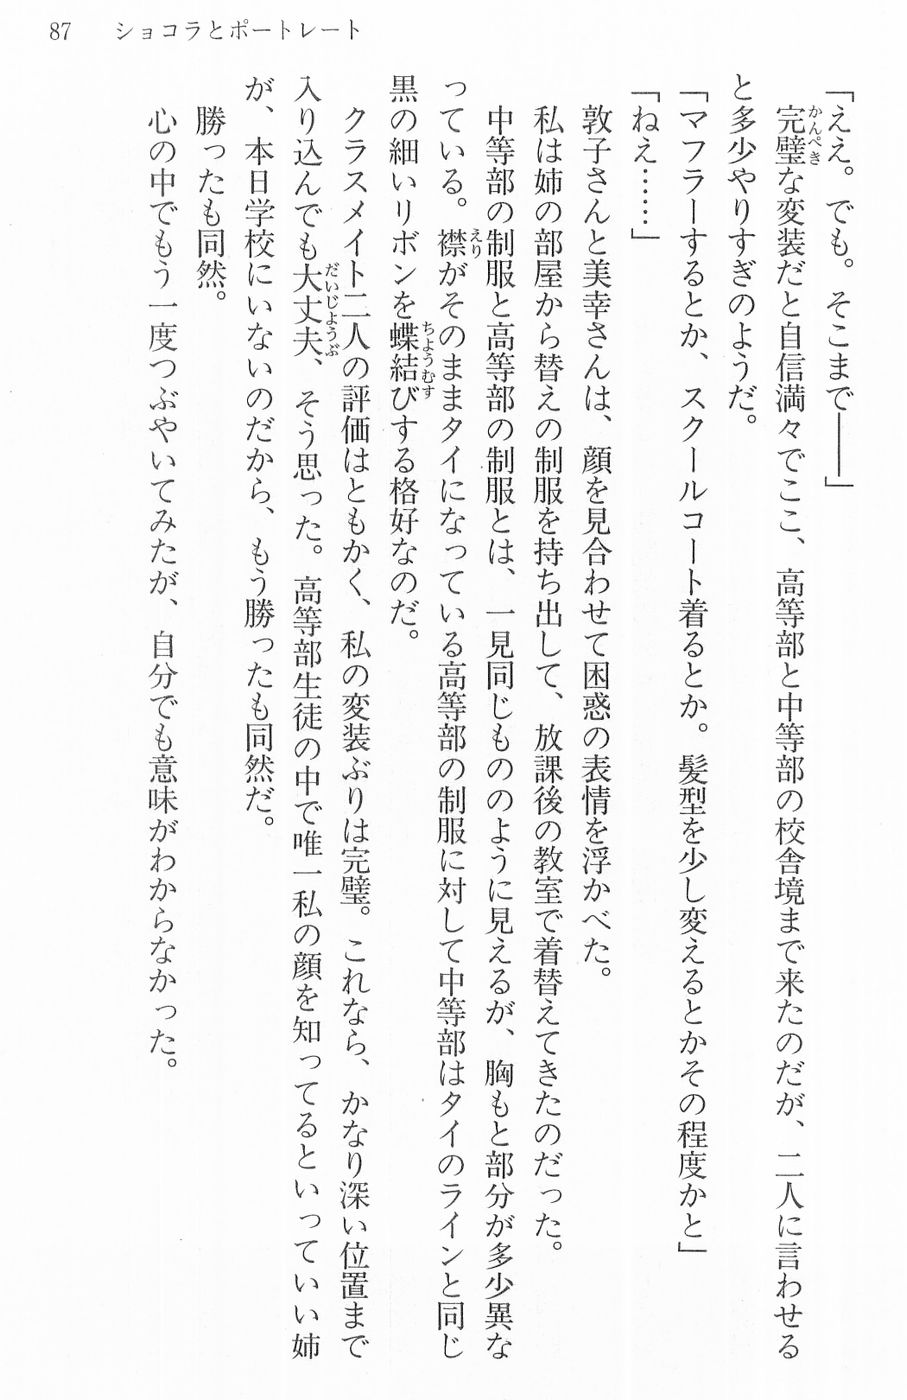 87　ショコラとポートレート
「ええ。でも。そこまで――」
完璧な変装だと自信満々でここ、高等部と中等部の校舎境まで来たのだが、二人に言わせる
と多少やりすぎのようだ。
「マフラーするとか、スクールコート着るとか。髪型を少し変えるとかその程度かと」
「ねえ……」
敦子さんと美幸さんは、顔を見合わせて困惑の表情を浮かべた。
私は姉の部屋から替えの制服を持ち出して、放課後の教室で着替えてきたのだった。
中等部の制服と高等部の制服とは、一見同じもののように見えるが、胸もと部分が多少異な
っている。襟がそのままタイになっている高等部の制服に対して中等部はタイのラインと同じ
黒の細いリボンを蝶結びする格好なのだ。
クラスメイト二人の評価はともかく、私の変装ぶりは完璧。これなら、かなり深い位置まで
入り込んでも大丈夫、そう思った。高等部生徒の中で唯一私の顔を知ってるといっていい姉
が、本日学校にいないのだから、もう勝ったも同然だ。
勝ったも同然。
心の中でもう一度つぶやいてみたが、自分でも意味がわからなかった。